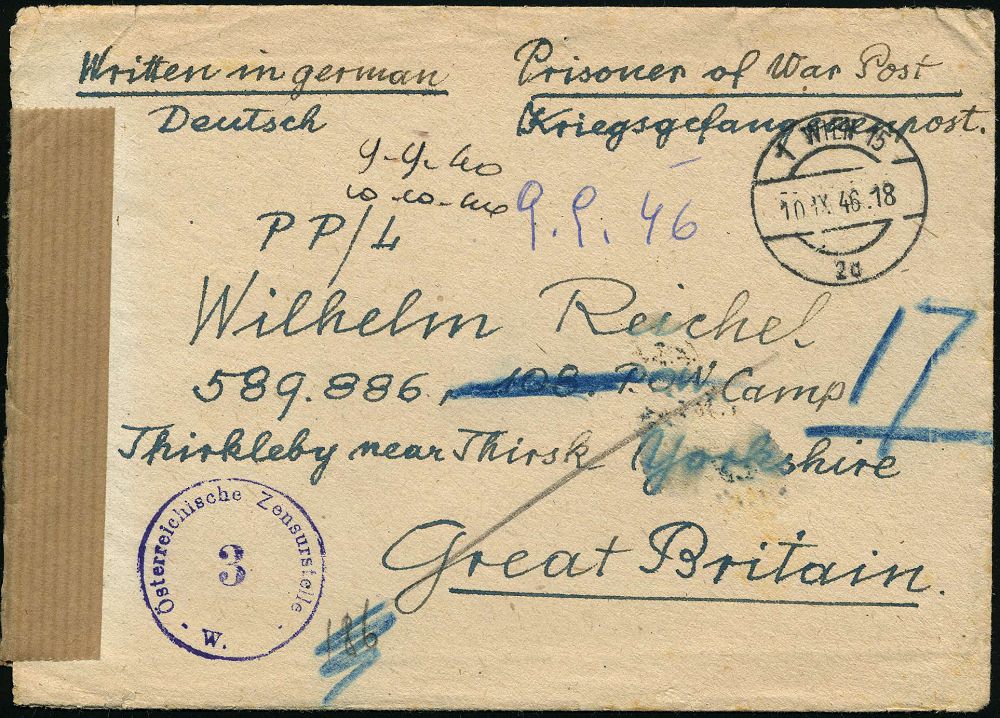 Written in german
Prisoner of War Post
Deutsch
Kriegsgefangenenpost.
WIEN 15
10.IX.46.18
2a
9.9.46
PP/L
Wilhelm Reichel
589.886, 108. P.O.W. Camp
17
Thirkleby near Thirsk Yorkshire
Great Britain.
Österreichische Zensurstelle
3
- W. -
186